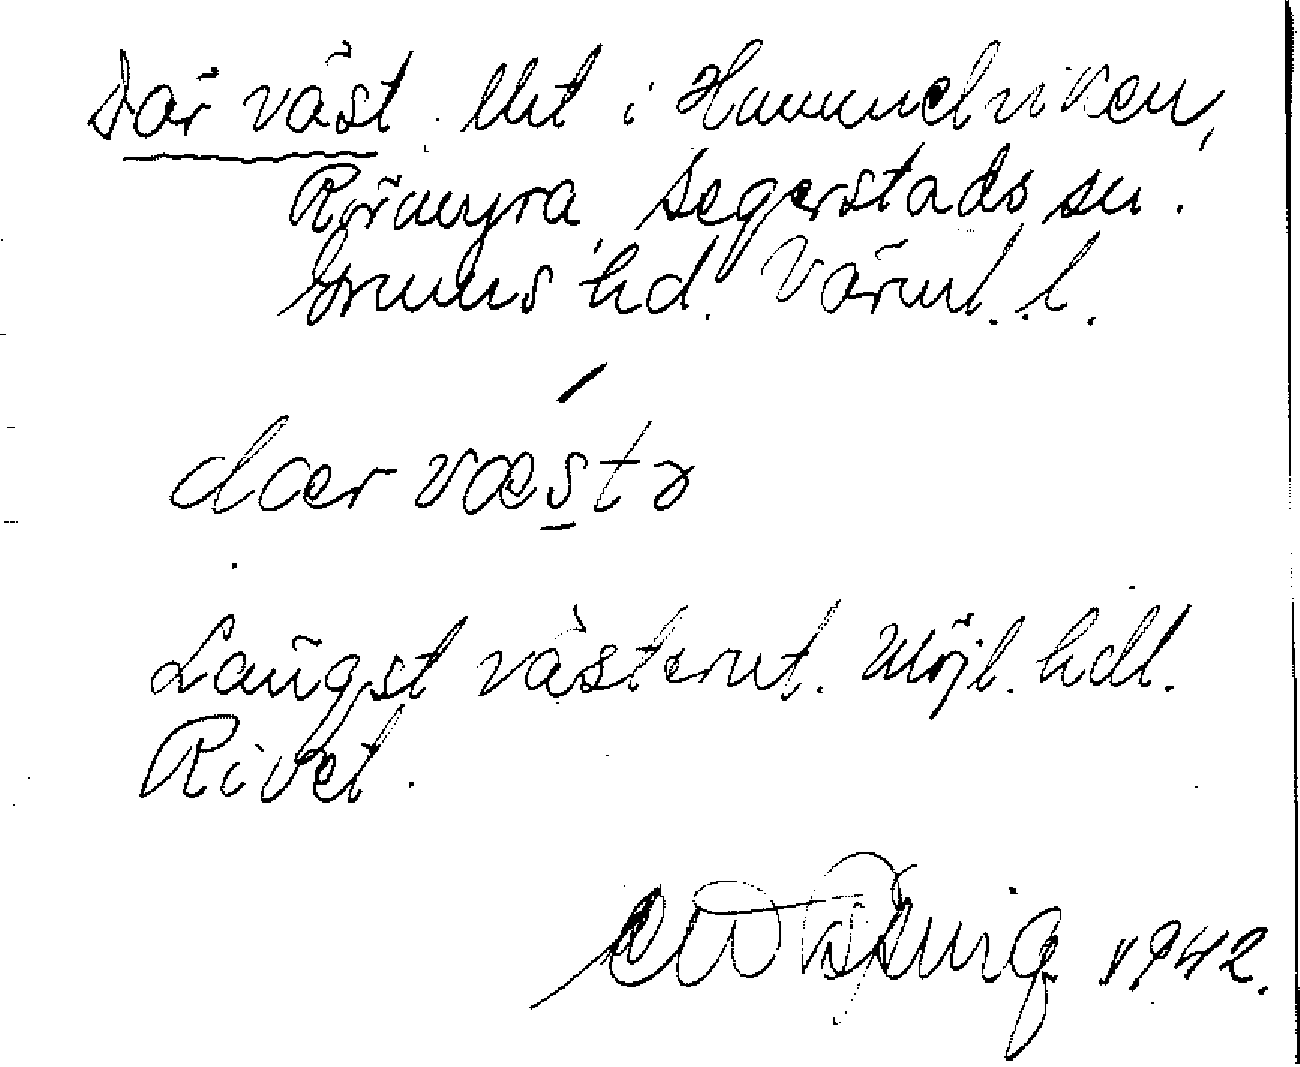 Där väst. Utt i Hummelviken,
Rörmyra, Segerstads sn.
Grums hd. Värml. l.
dær væsta
Längst västerut. Möjl. hdl.
Rivet.
1942.